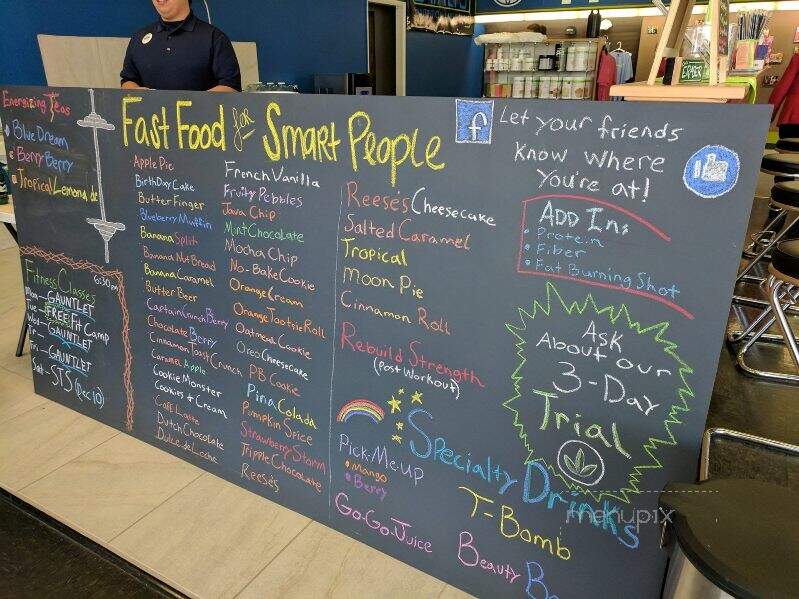 Energizing Teas
Blue Dream
Berry Berry
Tropical Lemonade
Fitness Classes
6:30pm
Mon - GAUNTLET
Tue - FREE Fit Camp
Wed - GAUNTLET
GAUNTLET
Sat - STS (Dec 10)
Fast Food for Smart People
Apple Pie
BirthDay Cake
Butter Finger
Blueberry Muffin
Banana Split
Banana Nut Bread
Banana Caramel
Butter Beer
Captain Crunch Berry
Chocolate Berry
Cinnamon Toast Crunch
Caramel Apple
Cookie Monster
Cookies + Cream
Café Latte
Dutch Chocolate
Dulce de Leche
French Vanilla
Fruity Pebbles
Java Chip
Mint Chocolate
Mocha Chip
No-Bake Cookie
Orange Cream
Orange Tootsie Roll
Oatmeal Cookie
Oreo Cheesecake
PB Cookie
Pina Colada
Pumpkin Spice
Strawberry Storm
Tripple Chocolate
Reese's
Reese's Cheesecake
Salted Caramel
Tropical
Moon Pie
Cinnamon Roll
Rebuild Strength
(Post Workout)
Specialty Drinks
Pick-Me-up
Mango
Berry
Go-Go-Juice
T-Bomb
Beauty
f
Let your friends
Know where
You're at!
Add In:
Protein
Fiber
Fat Burning Shot
Ask
About our
3-Day
Trial
menupix